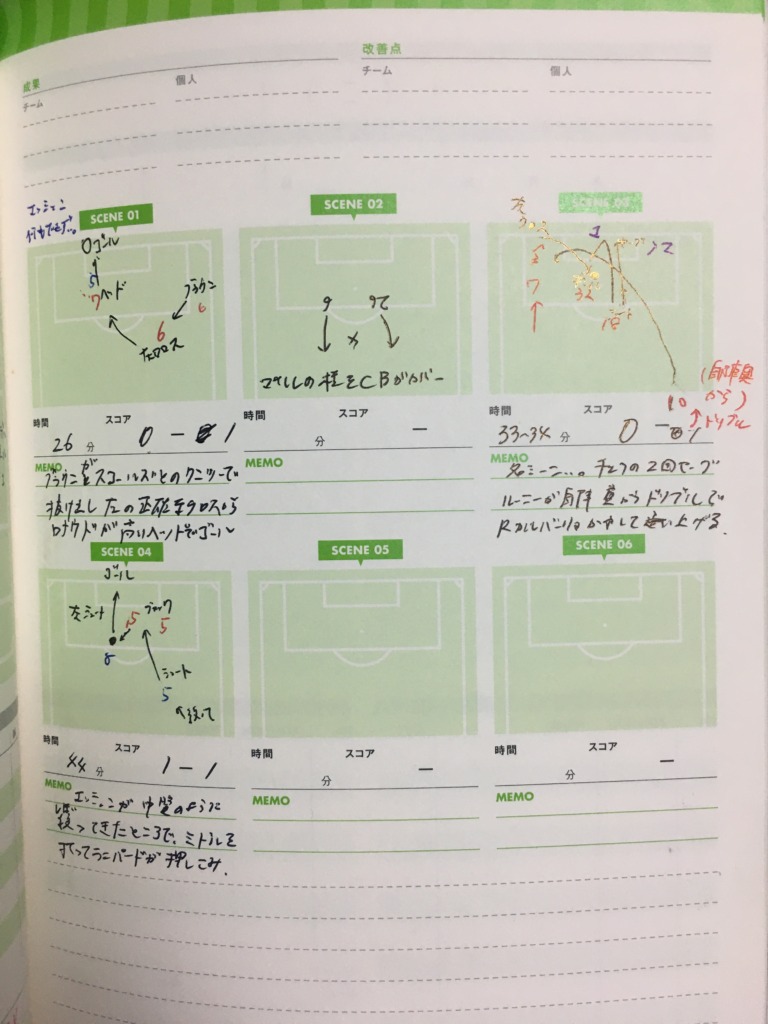 成果
改善点
チーム
個人
チーム
個人
エッシェン
SCENE 01
ゴール
5
7 ヘッド
ブラウン
6
6
右クロス
時間
スコア
26 分
0 - 1
MEMO
ブラウンがスコールズとのワンツーで
抜け出し 左の正確なクロスから
ロナウドが高いヘッドでゴール
SCENE 02
6
26
マケレレの横をCBがカバー
時間
スコア
分
-
MEMO
SCENE 03
左
1
7
32
10
(自陣奥
から)
ドリブル
時間
スコア
33~34 分
0 - 1
MEMO
名シーン...。チェフの2回セーブ
ルーニーが自陣奥からドリブルで
SCENE 04
ゴール
左シュート
15
ブロック
5
8
シュート
5
時間
スコア
44 分
1 - 1
MEMO
エッシェンが中盤のように
ってきたところで、ミドルを
打ってランパードが押しこみ。
SCENE 05
時間
スコア
分
-
MEMO
SCENE 06
時間
スコア
分
-
MEMO